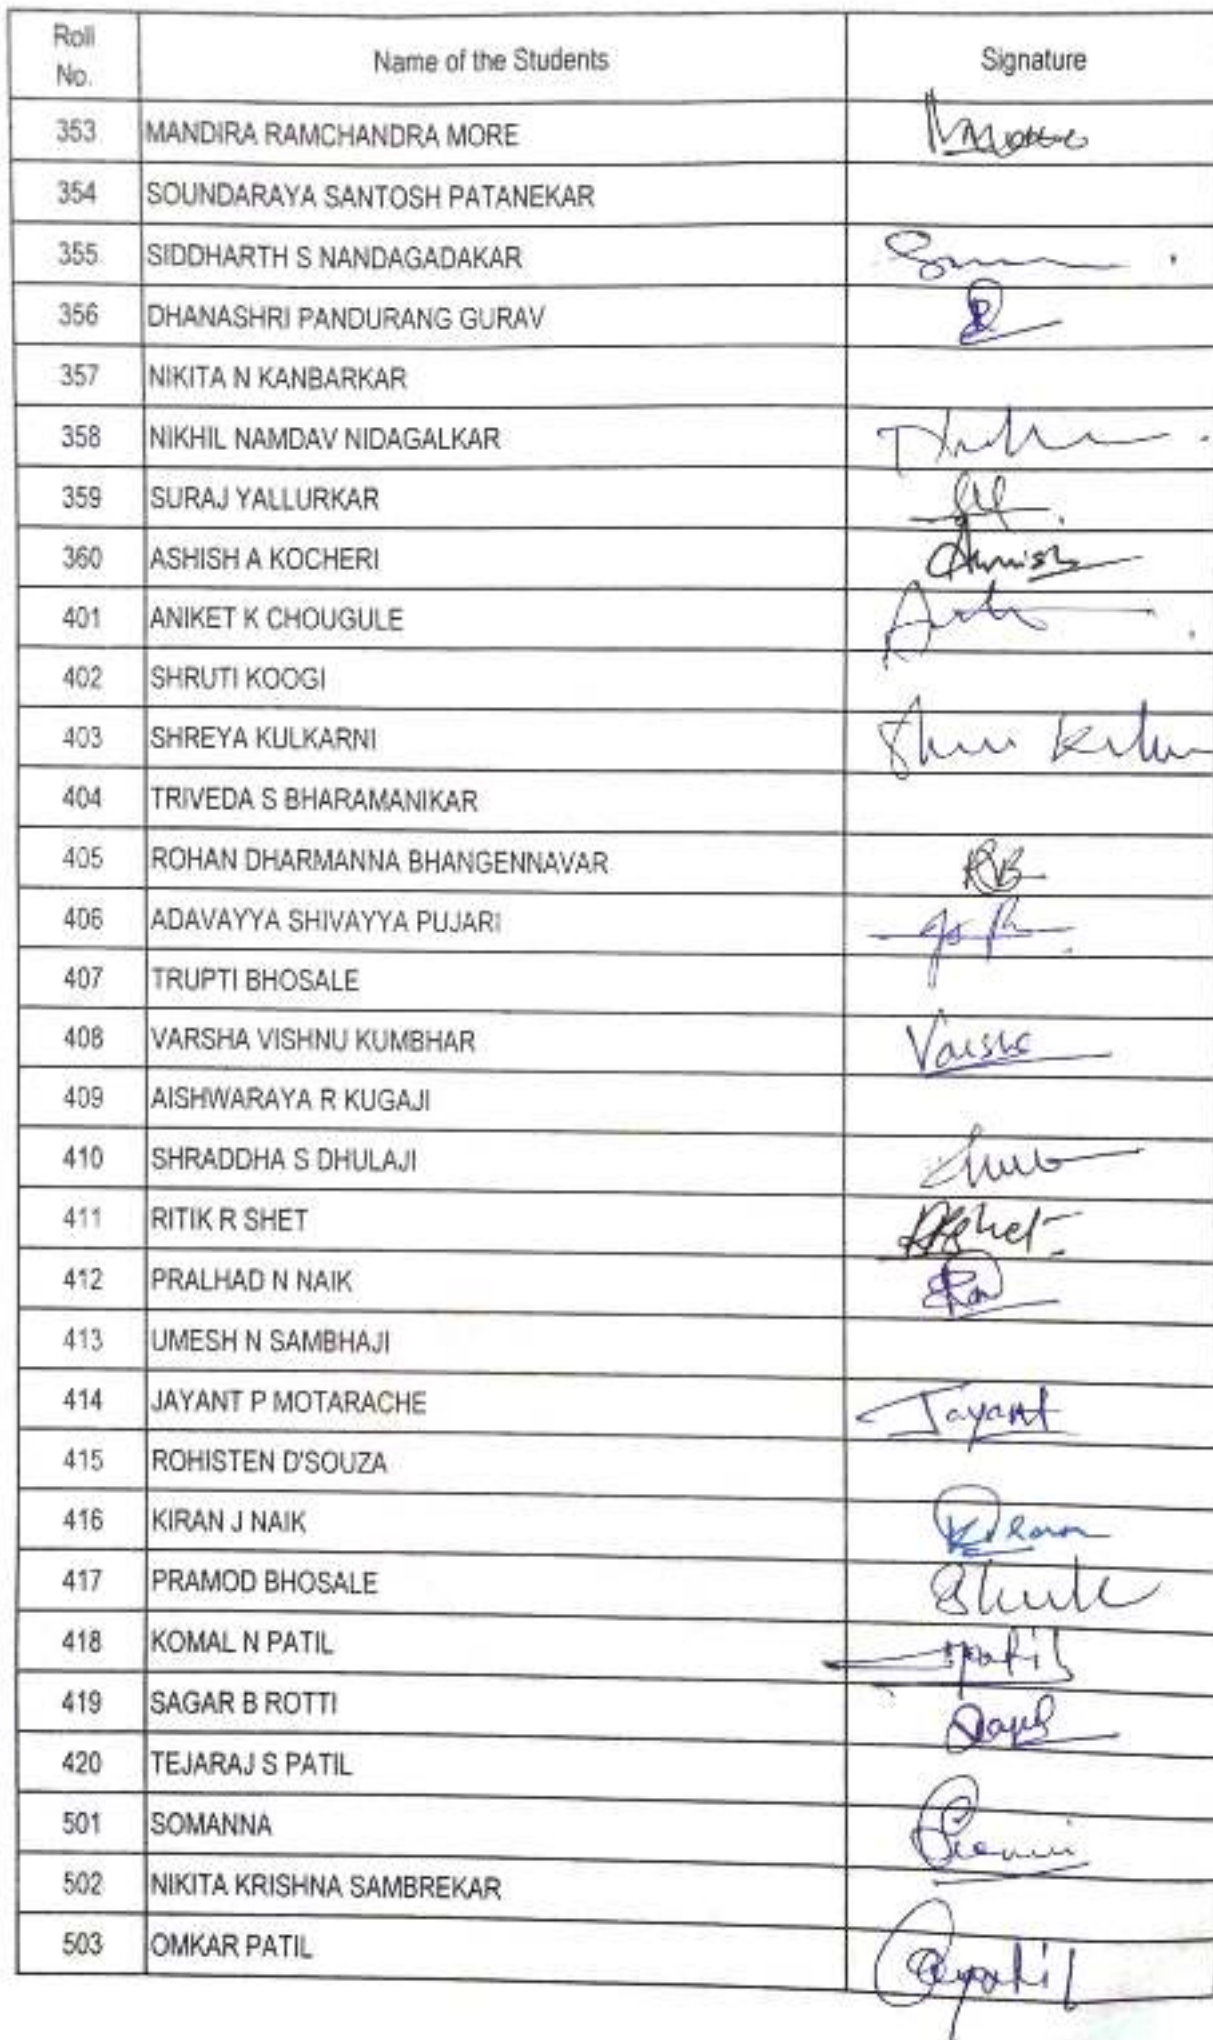 Roll No. Name of the Students Signature
353 MANDIRA RAMCHANDRA MORE
354 SOUNDARAYA SANTOSH PATANEKAR
355 SIDDHARTH S NANDAGADAKAR
356 DHANASHRI PANDURANG GURAV
357 NIKITA N KANBARKAR
358 NIKHIL NAMDAV NIDAGALKAR
359 SURAJ YALLURKAR
360 ASHISH A KOCHERI
401 ANIKET K CHOUGULE
402 SHRUTI KOOGI
403 SHREYA KULKARNI
404 TRIVEDA S BHARAMANIKAR
405 ROHAN DHARMANNA BHANGENNAVAR
406 ADAVAYYA SHIVAYYA PUJARI
407 TRUPTI BHOSALE
408 VARSHA VISHNU KUMBHAR
409 AISHWARAYA R KUGAJI
410 SHRADDHA S DHULAJI
411 RITIK R SHET
412 PRALHAD N NAIK
413 UMESH N SAMBHAJI
414 JAYANT P MOTARACHE Jayant
415 ROHISTEN D'SOUZA
416 KIRAN J NAIK
417 PRAMOD BHOSALE
418 KOMAL N PATIL
419 SAGAR B ROTTI
420 TEJARAJ S PATIL
501 SOMANNA
502 NIKITA KRISHNA SAMBREKAR
503 OMKAR PATIL